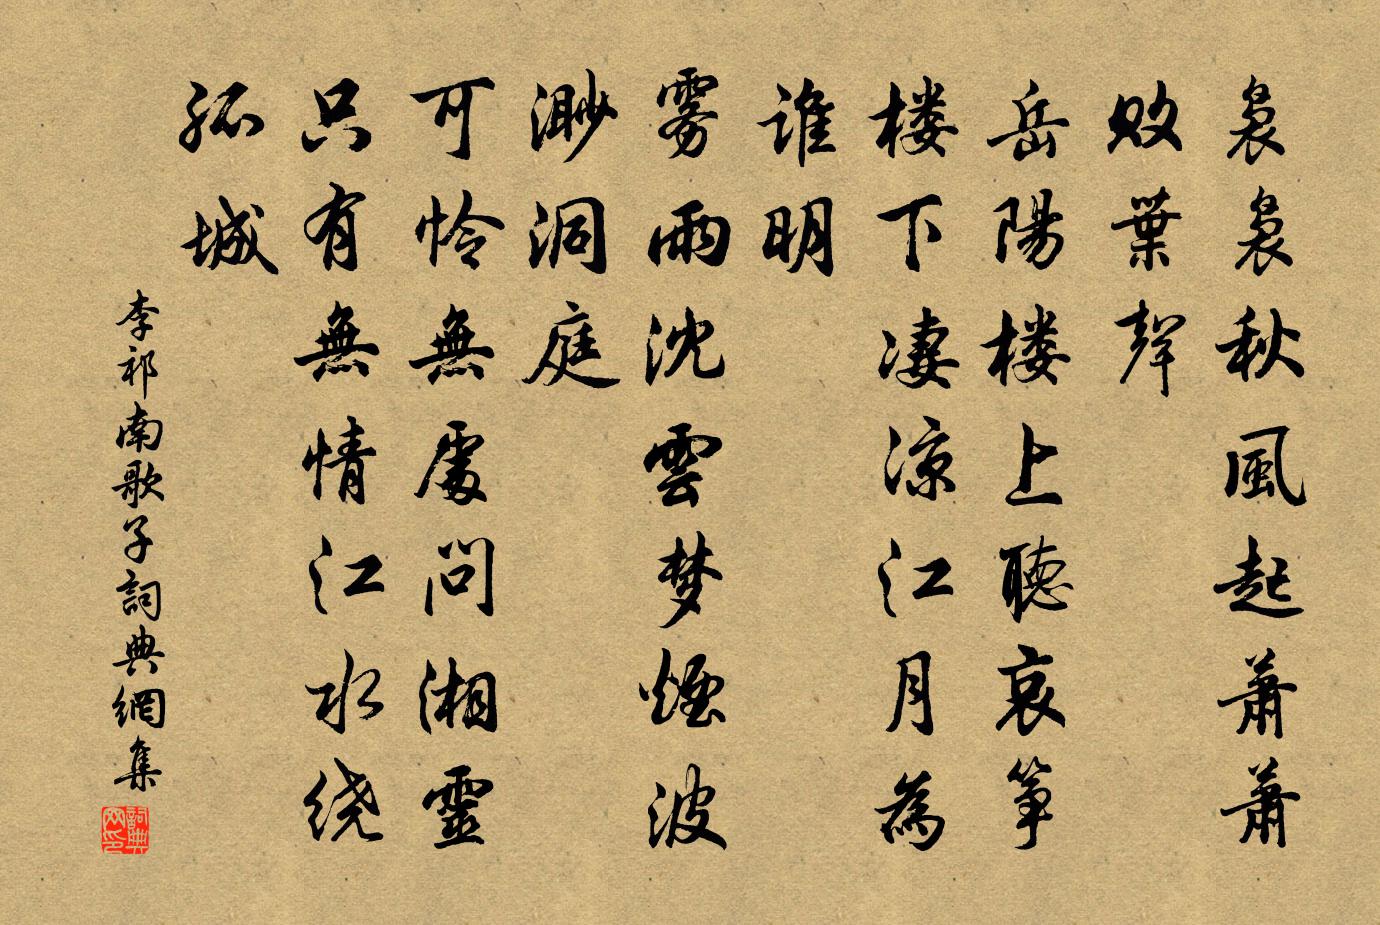 袅袅秋風起萧萧
败葉聲
岳陽楼上聽哀筝
楼下凄凉江月為
谁明
雾雨沈雲梦煙波
渺洞庭
可怜無處问湘靈
只有無情江水绕
孤城
李祁南歌子詞典網集
詞典网印